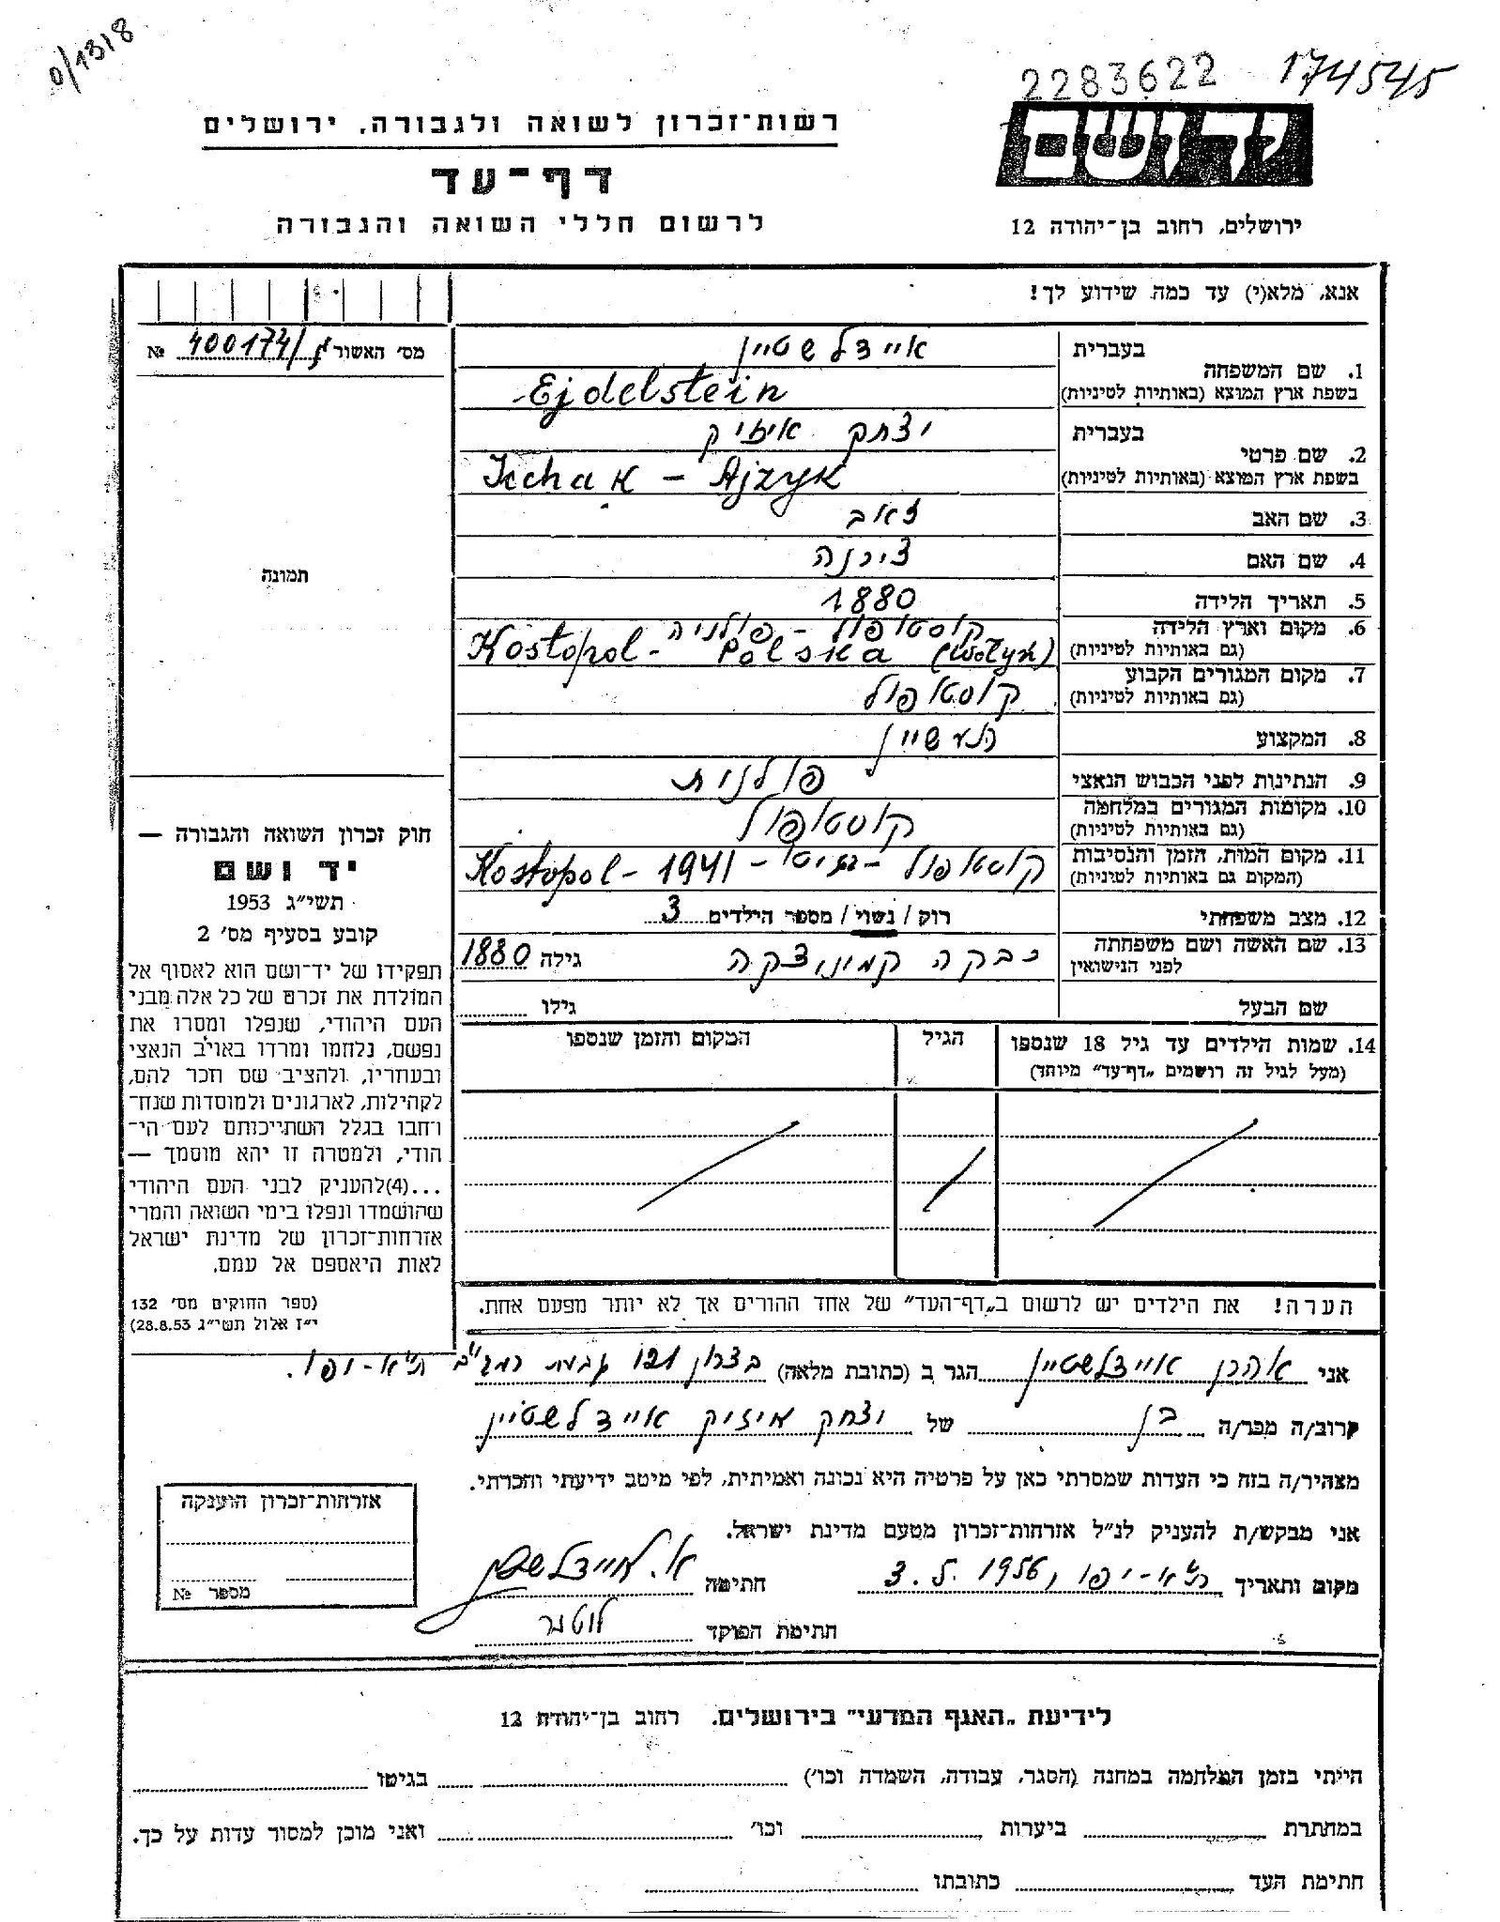 0/1318
2283622 174545
יד ושם
ירושלים, רחוב בן-יהודה 12
רשות-זכרון לשואה ולגבורה, ירושלים
דף-עד
לרשום חללי השואה והגבורה
אנא, מלא(י) עד כמה שידוע לך!
מס' האשור 400174/ №
תמונה
חוק זכרון השואה והגבורה —
יד ושם
תשי״ג 1953
קובע בסעיף מס' 2
תפקידו של יד-ושם הוא לאסוף אל
המולדת את זכרם של כל אלה מבני
העם היהודי, שנפלו ומסרו את
נפשם, נלחמו ומרדו באויב הנאצי
ובעוזריו, ולהציב שם וזכר להם,
לקהילות, לארגונים ולמוסדות שנח־
רחבו בגלל השתייכותם לעם הי־
הודי, ולמטרה זו יהא מוסמך —
...(4)להעניק לבני העם היהודי
שהושמדו ונפלו בימי השואה והמרי
אזרחות-זכרון של מדינת ישראל
לאות היאספם אל עמם.
(ספר החוקים מס' 132
י״ז אלול תשי״ג 28.8.53)
בעברית אײדלשטיין
1. שם המשפחה
בשפת ארץ המוצא (באותיות לטיניות) Ejdelstein
בעברית יצחק אייזיק
2. שם פרטי
בשפת ארץ המוצא (באותיות לטיניות) Icchak - Ajzyk
3. שם האב זאב
4. שם האם צירנה
5. תאריך הלידה 1880
6. מקום וארץ הלידה קוסטופול - פולניה
(גם באותיות לטיניות) Kostopol - Polska (Wołyń)
7. מקום המגורים הקבוע קוסטופול
(גם באותיות לטיניות)
8. המקצוע תעשיין
9. הנתינות לפני הכבוש הנאצי פולנית
10. מקומות המגורים במלחמה קוסטופול
(גם באותיות לטיניות)
11. מקום המות, הזמן והנסיבות קוסטופול - גיטו - Kostopol - 1941
(המקום גם באותיות לטיניות)
12. מצב משפחתי רוק / נשוי / מספר הילדים 3
13. שם האשה ושם משפחתה רבקה קמינצקה גילה 1880
לפני הנישואין
שם הבעל גילו
14. שמות הילדים עד גיל 18 שנספו הגיל המקום והזמן שנספו
(מעל לגיל זה רושמים „דף-עד״ מיוחד)
הערה! את הילדים יש לרשום ב„דף-העד״ של אחד ההורים אך לא יותר מפעם אחת.
אני אהרן אײדלשטיין הגר ב (כתובת מלאה) בצרון 121 גבעת רמב״ם ת״א-יפו.
קרוב/ה מכר/ה בן של יצחק אייזיק אײדלשטיין
מצהיר/ה בזה כי העדות שמסרתי כאן על פרטיה היא נכונה ואמיתית, לפי מיטב ידיעתי והכרתי.
אני מבקש/ת להעניק לנ״ל אזרחות-זכרון מטעם מדינת ישראל.
מקום ותאריך ת״א-יפו, 1956 חתימה א. אײדלשטיין
חתימת הפוקד
אזרחות-זכרון הוענקה
מספר №
לידיעת „האגף המדעי״ בירושלים. רחוב בן-יהודה 12
הייתי בזמן המלחמה במחנה (הסגר, עבודה, השמדה וכו') בגיטו
במחתרת ביערות וכו' ואני מוכן למסור עדות על כך.
חתימת העד כתובתו